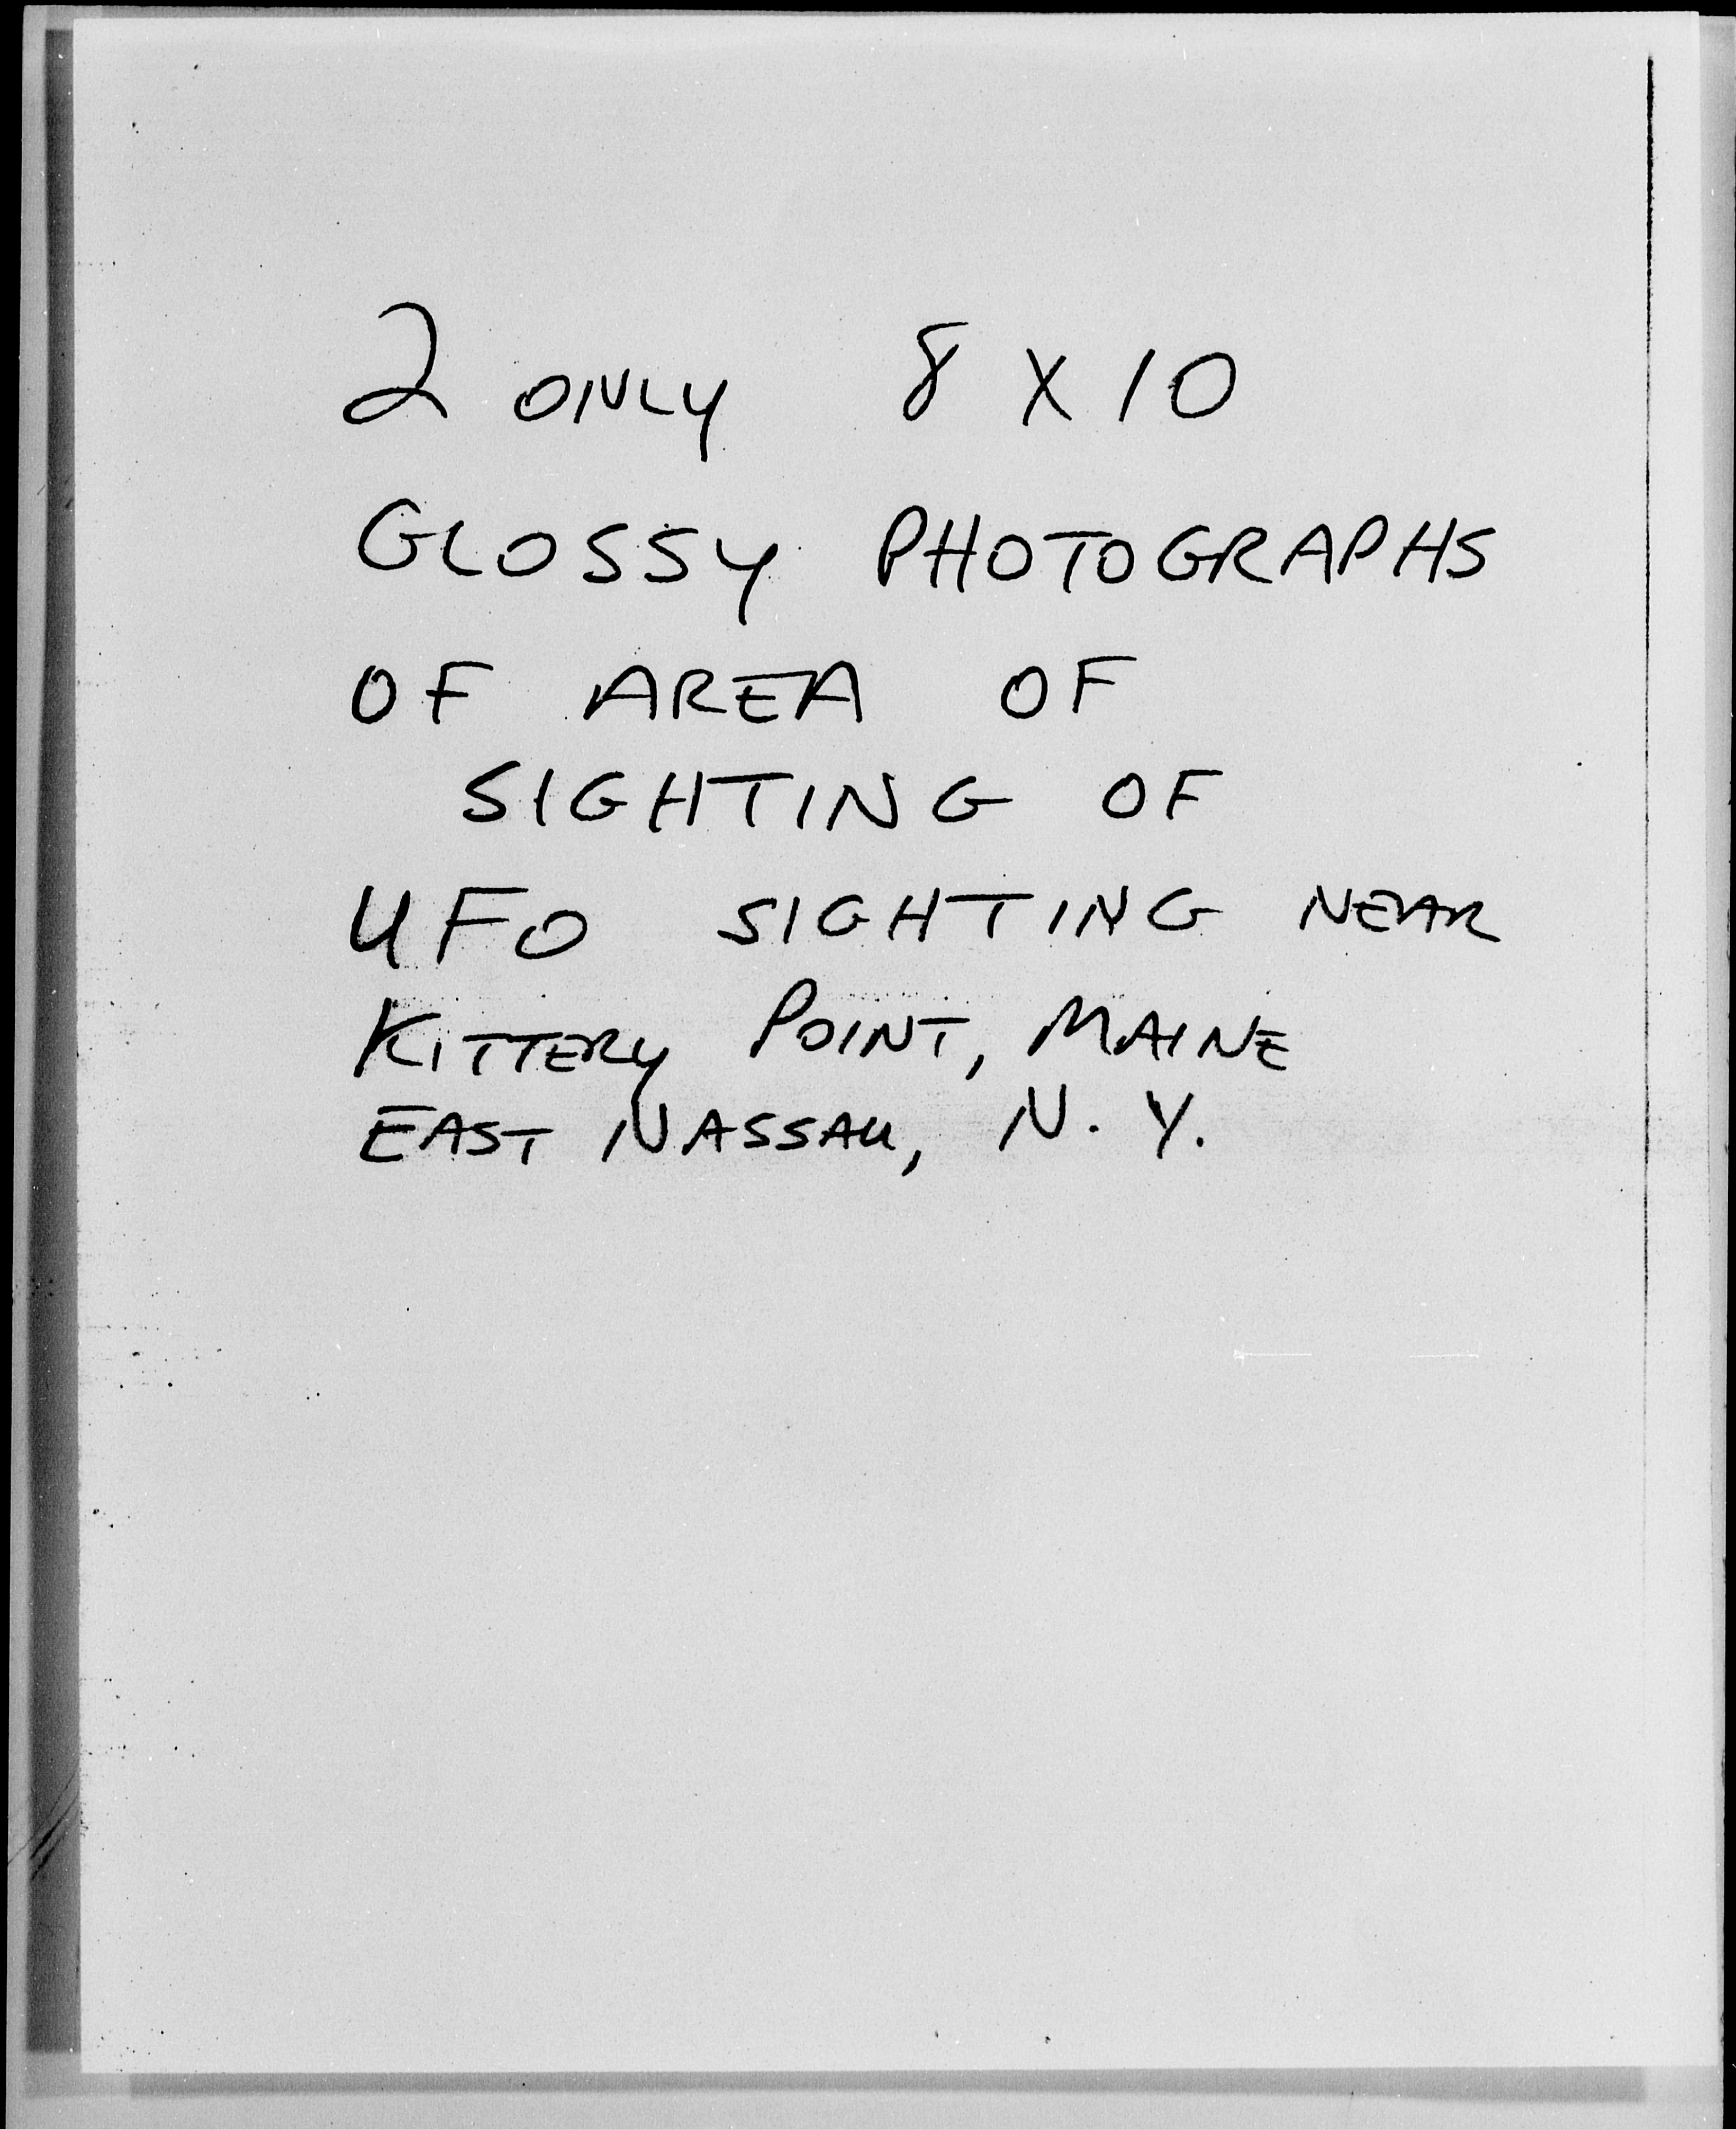 2 ONLY 8 X 10
GLOSSY PHOTOGRAPHS
OF AREA OF
SIGHTING OF
UFO SIGHTING NEAR
KITTERY POINT, MAINE
EAST NASSAU, N. Y.